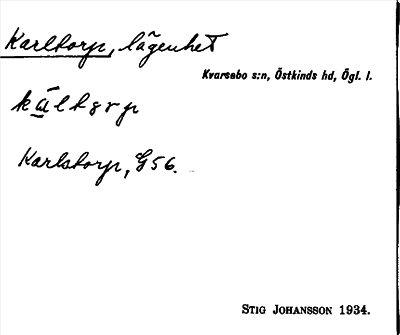 Karltorp, lägenhet
Kvarsebo s:n, Östkinds hd, Ögl. l.
Karlstorp, G56.
STIG JOHANSSON 1934.